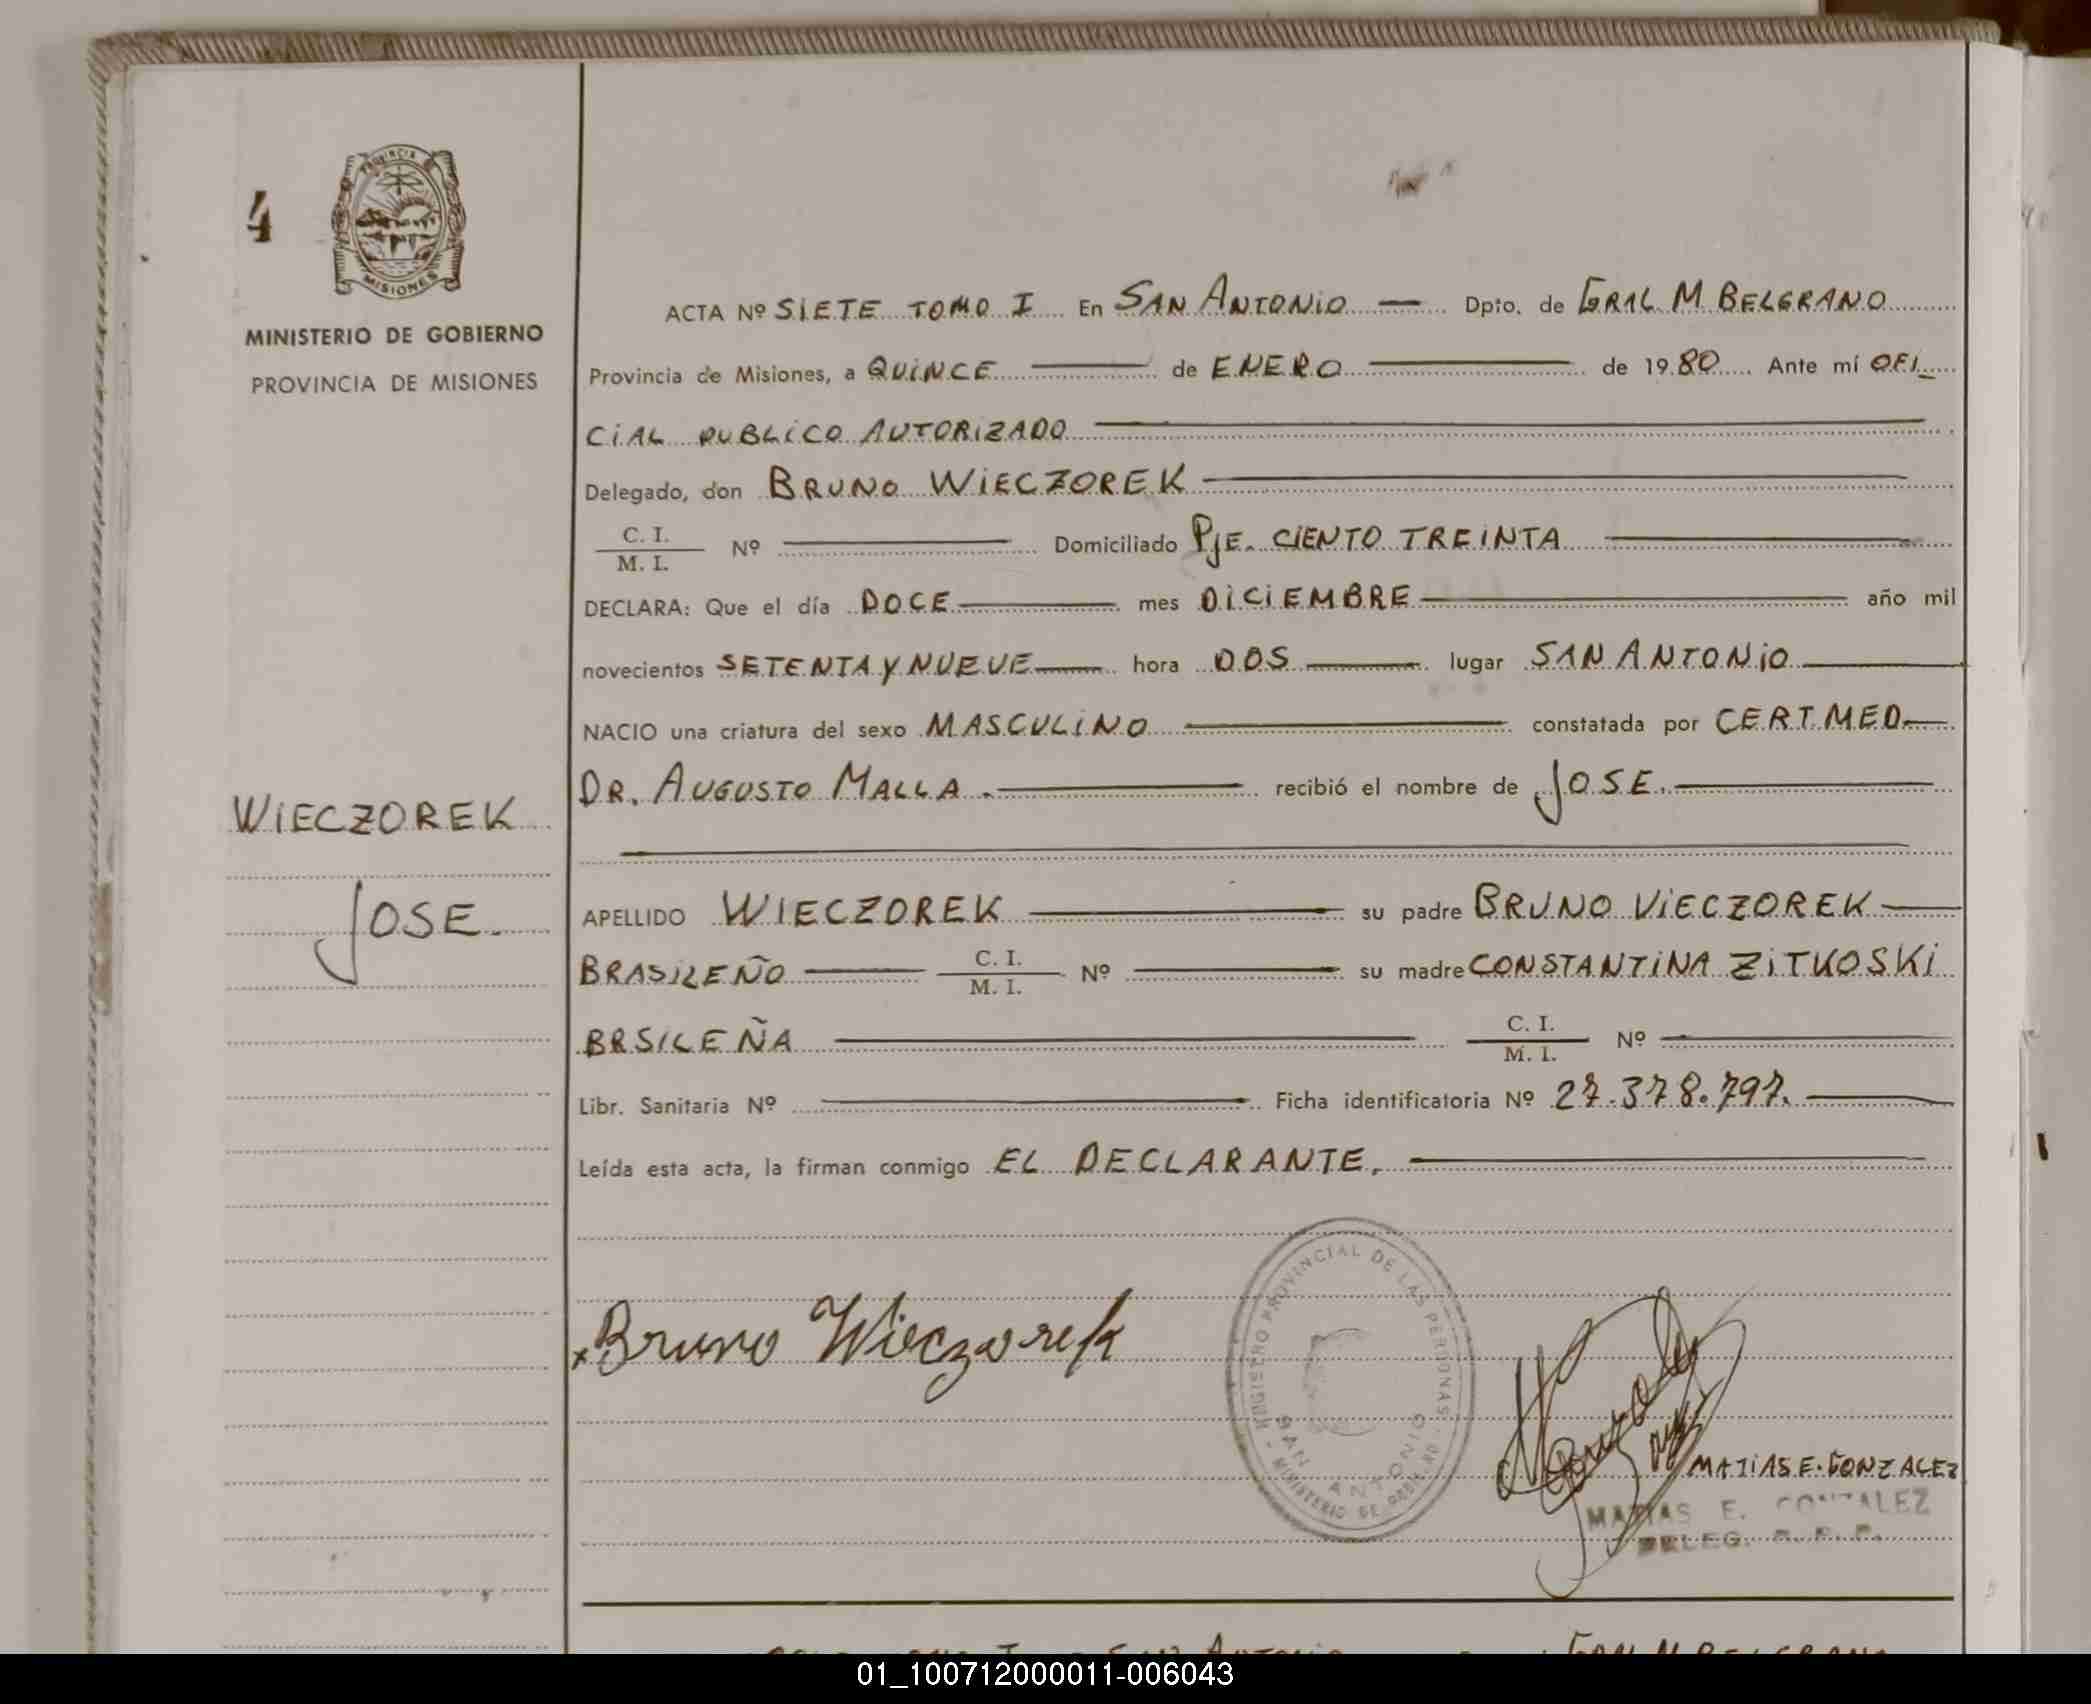 4
PROVINCIA
MISIONES
MINISTERIO DE GOBIERNO
PROVINCIA DE MISIONES
WIECZOREK
JOSE.
ACTA Nº SIETE TOMO I En SAN ANTONIO — Dpto. de GRAL M. BELGRANO
Provincia de Misiones, a QUINCE — de ENERO — de 1980 Ante mí OFI_
CIAL PUBLICO AUTORIZADO —
Delegado, don BRUNO WIECZOREK —
C. I. / M. I. Nº — Domiciliado PJE. CIENTO TREINTA —
DECLARA: Que el día DOCE — mes DICIEMBRE — año mil
novecientos SETENTA Y NUEVE — hora DOS — lugar SAN ANTONIO —
NACIO una criatura del sexo MASCULINO — constatada por CERT. MED. —
DR. AUGUSTO MALLA. — recibió el nombre de JOSE. —
APELLIDO WIECZOREK — su padre BRUNO VIECZOREK —
BRASILEÑO — C. I. / M. I. Nº — su madre CONSTANTINA ZITKOSKI
BRSILEÑA — C. I. / M. I. Nº —
Libr. Sanitaria Nº — Ficha identificatoria Nº 27.378.797. —
Leída esta acta, la firman conmigo EL DECLARANTE. —
x Bruno Wieczorek
REGISTRO PROVINCIAL DE LAS PERSONAS - MINISTERIO DE GOBIERNO -
SAN ANTONIO
MATIAS E. GONZALEZ
MATIAS E. GONZALEZ
DELEG. R. P. P.
01_100712000011-006043